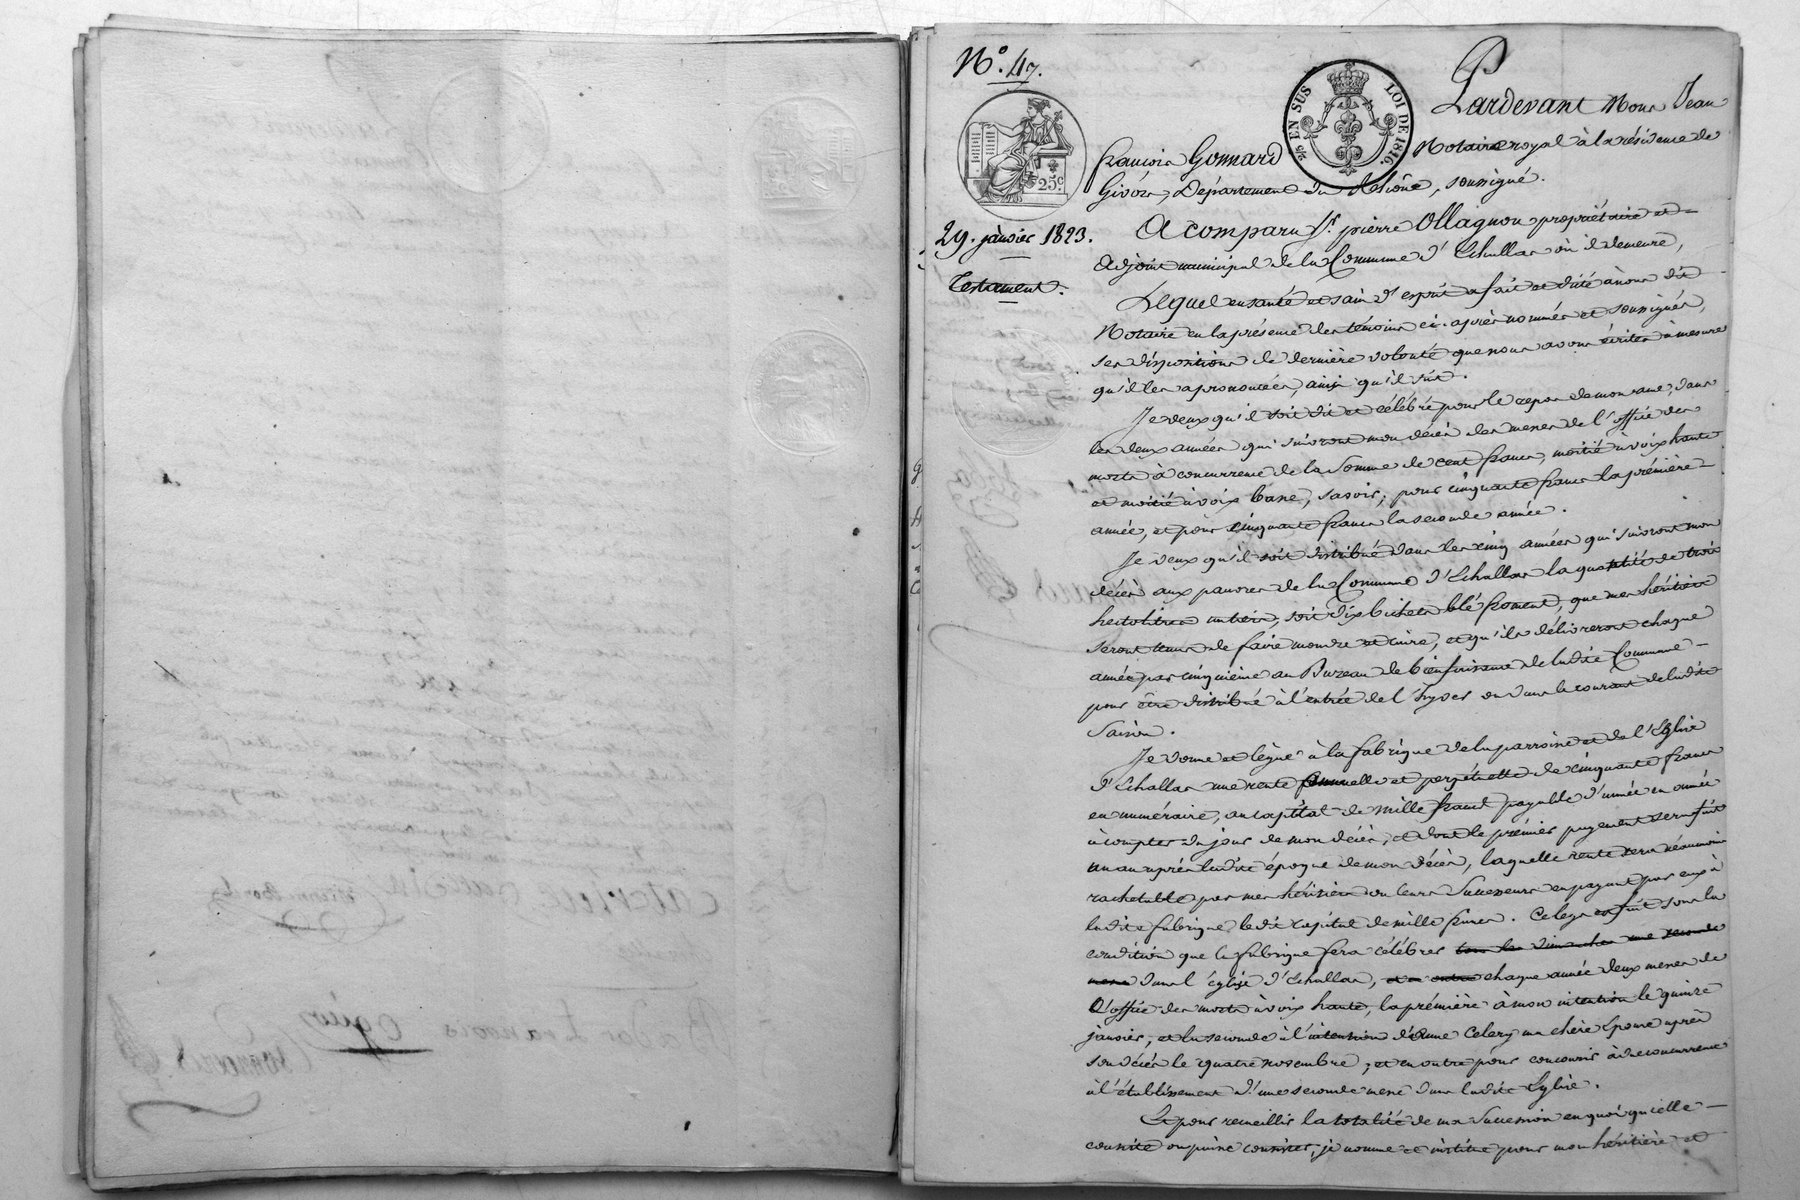 N.° 47.
EN SUS
LOI DE 1816.
25c
29. janvier 1823.
Testament.
Pardevant Nous Jean
françois Gonnard Notaire royal à la résidence de
Givors, Département du Rhône, soussigné.
A comparu Sr. pierre Ollagnon propriétaire et
Adjoint municipal de la Commune d'Echallas où il demeure,
Lequel en santé et sain d'esprit a fait et dicté à nous dit
Notaire en la présence des témoins ci-après nommés et soussignés,
ses dispositions de dernière volonté que nous avons écrites à mesure
qu'il les a prononcées, ainsi qu'il suit.
Je veux qu'il soit dit et célébré pour le repos de mon ame, dans
les deux années qui suivront mon décès des messes de l'office des
morts à concurrence de la Somme de cent francs, moitié à voix haute
et moitié à voix basse, savoir; pour cinquante francs la première
année, et pour cinquante francs la seconde année.
Je veux qu'il soit distribué dans les cinq années qui suivront mon
décès aux pauvres de la Commune d'Echallas la quantité de trois
hectolitres un tiers, soit dix bichets blé froment, que mes héritiers
seront tenus de faire moudre et cuire, et qu'ils délivreront chaque
année par cinquième au Bureau de bienfaisance de ladite Commune
pour être distribué à l'entrée de l'hyver ou dans le courant de ladite
Saison.
Je donne et lègue à la fabrique de la parroisse et de l'Eglise
d'Echallas une rente annuelle et perpétuelle de cinquante francs
en numéraire, au capital de mille francs payable d'année en année
à compter du jour de mon décès, et dont le premier payement sera fait
un an après ladite époque de mon décès, laquelle rente sera néanmoins
rachetable par mes héritiers ou leurs Successeurs en payant par eux à
ladite fabrique ledit capital de mille francs. Ce legs est fait sous la
condition que la fabrique fera célébrer tous les dimanches une seconde
messe dans l'église d'Echallas, et en outre chaque année deux messes de
l'office des morts à voix haute, la première à mon intention le quinze
janvier, et la seconde à l'intention d'Anne Celery ma chère Epouse après
son décès le quatre novembre; et en outre pour concourir à due concurrence
à l'établissement d'une seconde messe dans ladite Eglise.
Et pour recueillir la totalité de ma Succession en quoi qu'elle
consiste ou puisse consister, je nomme et institue pour mon héritière et